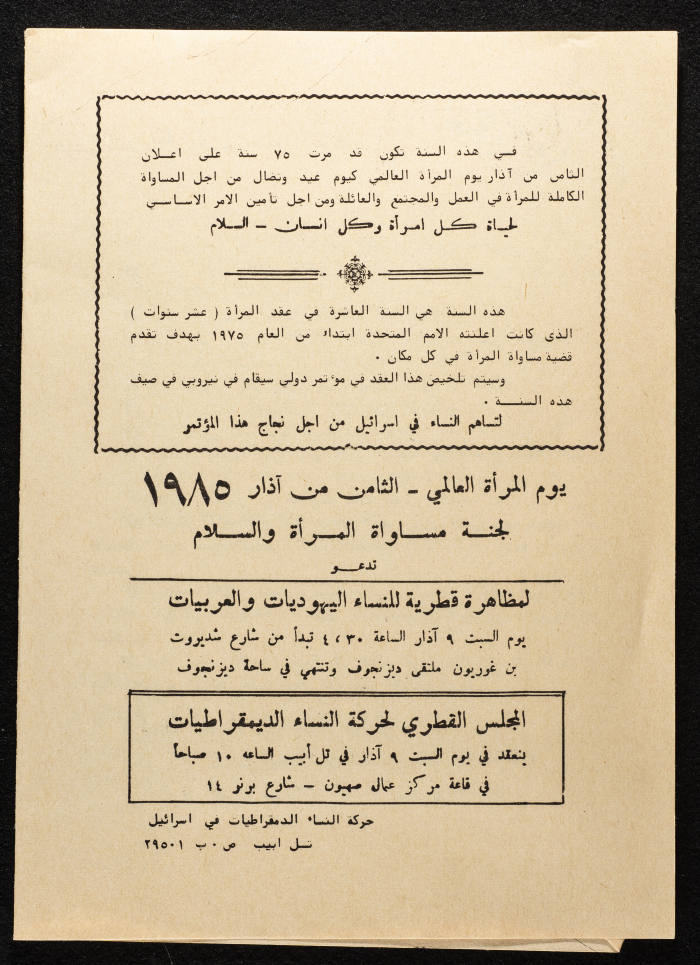 في هذه السنة تكون قد مرت ٧٥ سنة على اعلان
الثامن من آذار يوم المرأة العالمي كيوم عيد ونضال من اجل المساواة
الكاملة للمرأة في العمل والمجتمع والعائلة ومن اجل تأمين الامر الاساسي
لحياة كل امرأة وكل انسان - السلام
هذه السنة هي السنة العاشرة في عقد المرأة ( عشر سنوات )
الذي كانت اعلنته الامم المتحدة ابتداء من العام ١٩٧٥ بهدف تقدم
قضية مساواة المرأة في كل مكان .
وسيتم تلخيص هذا العقد في مؤتمر دولي سيقام في نيروبي في صيف
هذه السنة .
لتساهم النساء في اسرائيل من اجل نجاح هذا المؤتمر
يوم المرأة العالمي - الثامن من آذار ١٩٨٥
لجنة مساواة المرأة والسلام
تدعو
لمظاهرة قطرية للنساء اليهوديات والعربيات
يوم السبت ٩ آذار الساعة ٤،٣٠ تبدأ من شارع شديروت
بن غوريون ملتقى ديزنجوف وتنتهي في ساحة ديزنجوف
المجلس القطري لحركة النساء الديمقراطيات
ينعقد في يوم السبت ٩ آذار في تل أبيب الساعه ١٠ صباحاً
في قاعة مركز عمال صهيون - شارع برنر ١٤
حركة النساء الدمقراطيات في اسرائيل
تل ابيب ص.ب ٢٩٥٠١